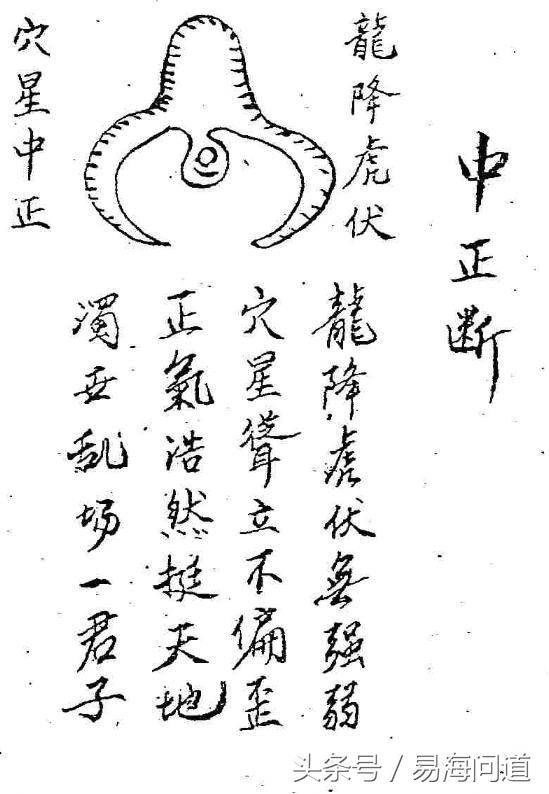 中正断
龍降虎伏
穴星中正
龍降虎伏無强弱
穴星聳立不偏歪
正氣浩然挺天地
濁世乱场一君子
头条号 / 易海问道